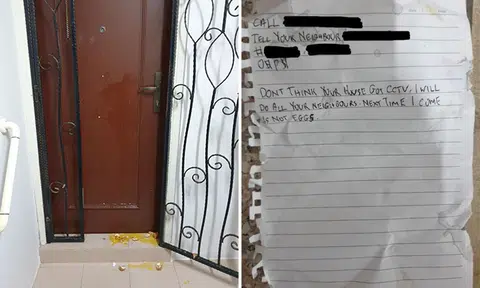 CALL
TELL YOUR NEIGHBOUR
#
O$P$
DONT THINK YOUR HOUSE GOT CCTV, I WILL
DO ALL YOUR NEIGHBOURS. NEXT TIME I COME
IS NOT EGGS